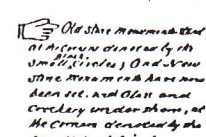 Old stone monuments stood
at the corners denoted by the
Black
small Circles; And New
stone monuments have now
been set. and Glass and
Crockery under them, at
the corners denoted by the